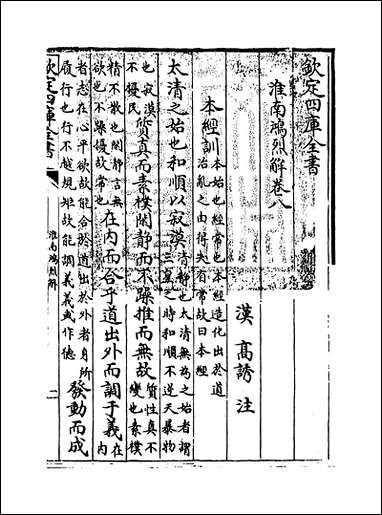 欽定四庫全書
淮南鴻烈解卷八
漢 高誘 注
本經訓 本始也經常也本經造化出於道
治亂之由得失有常故曰本經
太清之始也和順以寂漠 清静也太清無為之始者謂
三皇之時和順不逆天暴物
也寂漠
不擾民 質真而素樸閑静而不躁推而無故 質性真不
變也素樸
精不散也閑静言無
欲也不躁擾故常也 在内而合乎道出外而調于義 在
内
者志在心平欲故能合於道出於外者身所
履行也行不越規矩故能調義義或作德 發動而成
欽定四庫全書
淮南鴻烈解